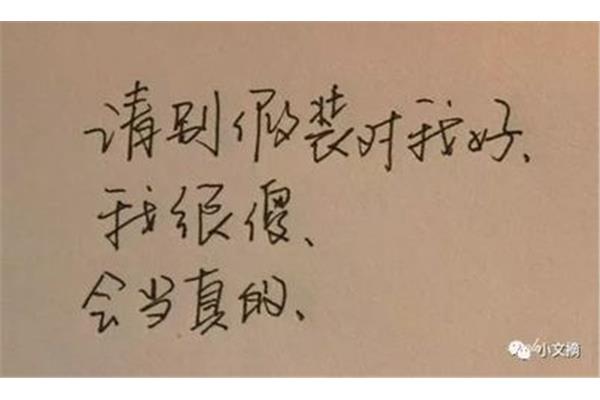 请别假装对我好、
我很傻、
会当真的、
小文摘